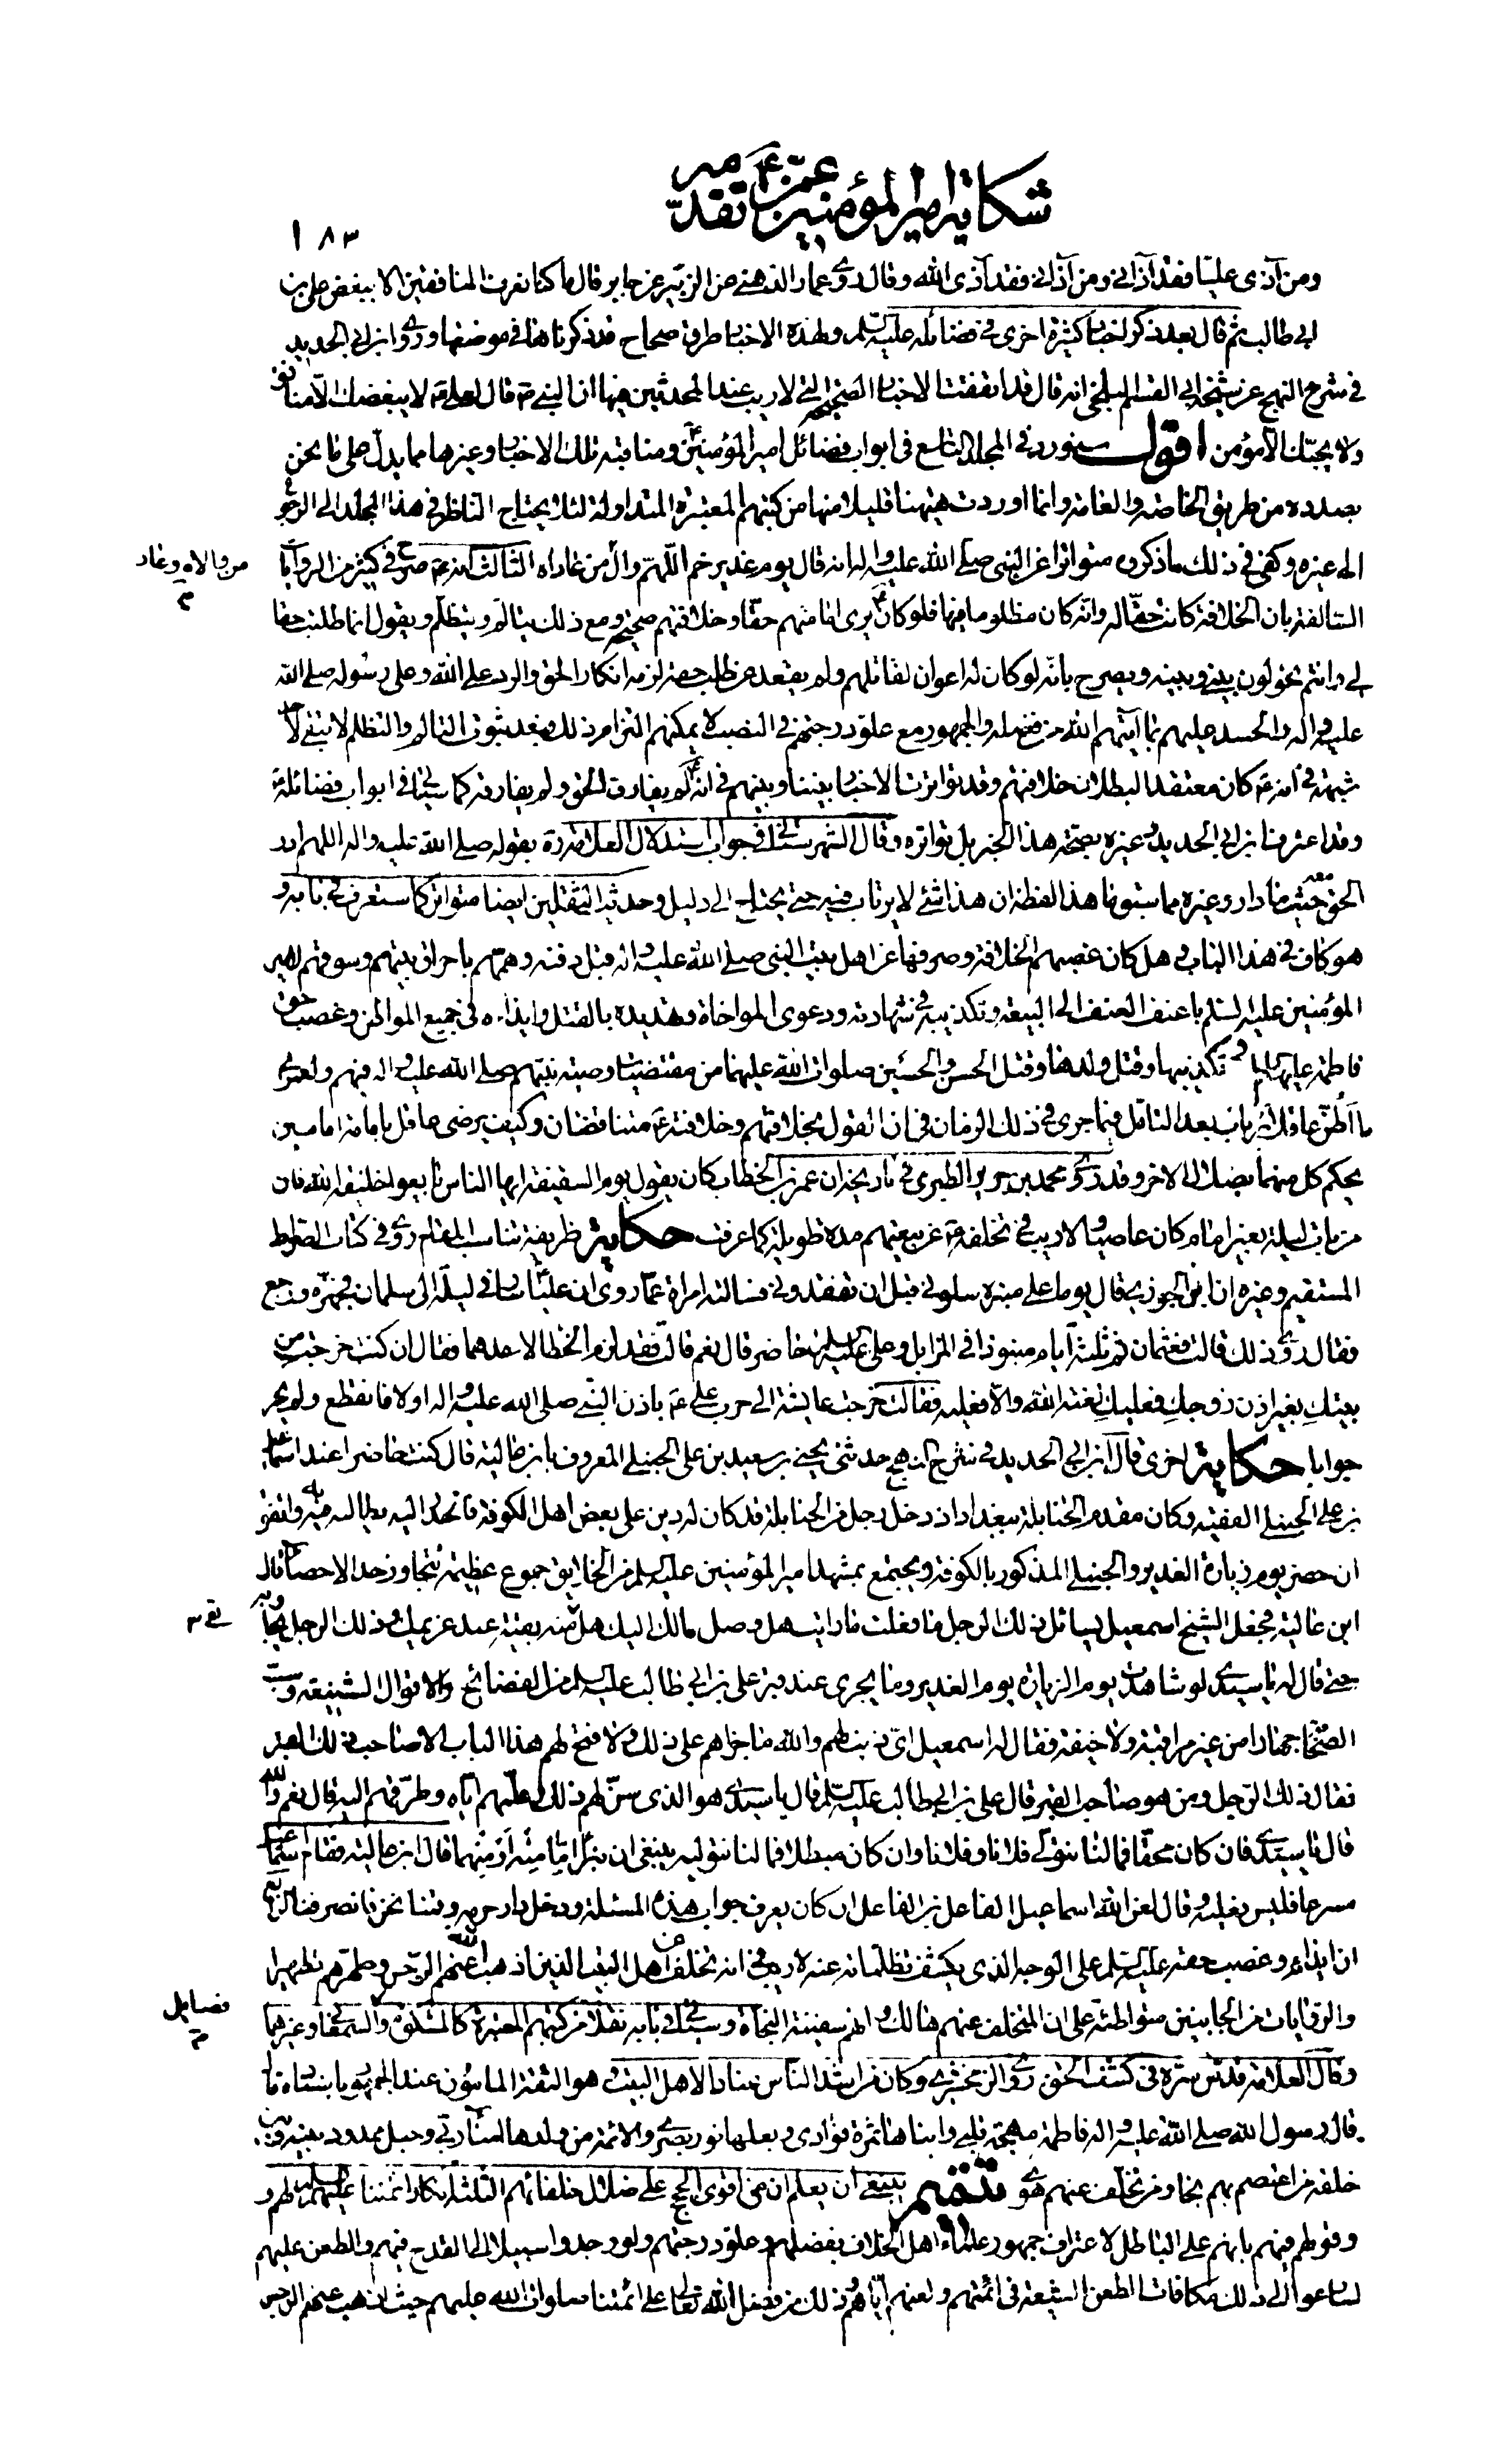 شكاية امير المؤمنين ع عمن تقدمه
١٨٣
ومن آذى عليّا فقد آذاني ومن آذاني فقد آذى الله وقال روى عمار الدهني عن الزبير عن جابر قال ما كنا نعرف المنافقين الا ببغض علي بن
ابي طالب ثم قال بعد ذكر اخبار كثيرة اخرى في فضائله عليه السلم ولهذه الاخبار طرق صحاح قد ذكرناها في موضعها وروى ابن ابي الحديد
في شرح النهج عن شيخه ابي القسم البلخي انه قال قد اتفقت الاخبار الصحيحة التي لا ريب عند المحدثين فيها ان النبي ص قال لعلي ع لا يبغضك الا منافق
ولا يحبّك الا مؤمن اقول سنورد في المجلد التاسع في ابواب فضائل امير المؤمنين ع ومناقبه تلك الاخبار وغيرها مما يدل على ما نحن
بصدده من طريق الخاصة والعامة وانما اوردت هيهنا قليلا منها من كتبهم المعتبرة المتداولة لئلا يحتاج الناظر في هذا المجلد الى الرجوع
الى غيره وكفى في ذلك ما ذكروه متواترا عن النبي صلى الله عليه واله انه قال يوم غدير خم اللهم وال من عاداه الثالث انه ع صرح في كثير من الروايات
من والاه وعاد
م
السالفة بان الخلافة كانت حقا له وانه كان مظلوما فيها فلو كان ع يرى امامتهم حقا وخلافتهم صحيحة ومع ذلك يتألم ويتظلم ويقول انما طلبت حقا
لي وانتم تحولون بيني وبينه ويصرح بانه لو كان له اعوان لقاتلهم ولم يقعد عن طلب حقه لزمه انكار الحق والرد على الله وعلى رسوله صلى الله
عليه واله والحسد عليهم بما آتيهم الله من فضله والجمهور مع علو درجتهم في النصب لا يمكنهم التزام ذلك فبعد ثبوت التألم والتظلم لا يبقى لاحد
شبهة في انه ع كان معتقدا لبطلان خلافتهم وقد تواترت الاخبار بيننا وبينهم في انه ع لم يفارق الحق ولم يفارقه كما سيأتي في ابواب فضائله ع
وقد اعترف ابن ابي الحديد وغيره بصحة هذا الخبر بل تواتره وقال الشهرستاني في جواب استدلال العلامة ره بقوله صلى الله عليه واله اللهم ادر
الحق معه حيث ما دار وغيره مما سبق ما هذا لفظه ان هذا شيء لا يرتاب فيه حتى يحتاج الى دليل وحديث الثقلين ايضا متواتر كما ستعرف في بابه و
هو كاف في هذا الباب وهل كان غصبهم الخلافة وصرفها عن اهل بيت النبي صلى الله عليه واله قبل دفنه وهمهم باحراق بيتهم وسوقهم لامير
المؤمنين عليه السلم باعنف العنف الى البيعة وتكذيبه في شهادته ودعوى المواخاة وتهديده بالقتل وايذاءه في جميع المواطن وغصب حق
فاطمة عليها السلم وتكذيبها وقتل ولدها وقتل الحسن والحسين صلوات الله عليهما من مقتضيات وصية نبيهم صلى الله عليه واله فيهم ولعمري
ما اظن عاقلا يرتاب بعد التأمل فيما جرى في ذلك الزمان في ان القول بخلافتهم وخلافته ع متناقضان وكيف يرضى عاقل بامامة امامين
يحكم كل منهما بضلال الاخر وقد روى محمد بن جرير الطبري في تاريخه ان عمر بن الخطاب كان يقول يوم السقيفة ايها الناس بايعوا خليفة الله فان
من بات ليلة بغير امام كان عاصيا ولا ريب في تخلفه ع عن بيعتهم مدة طويلة كما عرفت حكاية ظريفة تناسب المقام روى في كتاب الصراط
المستقيم وغيره ان ابن الجوزي قال يوما على منبره سلوني قبل ان تفقدوني فسالته امراة عما روي ان عليا ع سار في ليلة الى سلمان فجهزه ورجع
فقال روى ذلك قالت فعثمان ثم ثلثة ايام منبوذا في المزابل وعلي عليه السلم حاضر قال نعم قالت فقد لزم الخطا لاحدهما فقال ان كنت خرجت من
بيتك بغير اذن زوجك فعليك لعنة الله والا فعليه فقالت خرجت عايشة الى حرب علي ع باذن النبي صلى الله عليه واله او لا فانقطع ولم يحر
جوابا حكاية اخرى قال ابن ابي الحديد في شرح النهج حدثني يحيى بن سعيد بن علي الحنبلي المعروف بابن عالية قال كنت حاضرا عند اسماعيل
بن علي الحنبلي الفقيه وكان مقدم الحنابلة ببغداد اذ دخل رجل من الحنابلة قد كان له دين على بعض اهل الكوفة فانحدر اليه يطالبه به واتفق
ان حضر يوم زيارة الغدير والحنبلي المذكور بالكوفة ويجتمع بمشهد امير المؤمنين عليه السلم من الخلايق جموع عظيمة تتجاوز حد الاحصاء قال
ابن عالية فجعل الشيخ اسمعيل يسائل ذلك الرجل ما فعلت ما رايت هل وصل مالك اليك هل منه بقية عند غريمك وذلك الرجل يجاوبه
بقي م
حتى قال له يا سيدي لو شاهدت يوم الزيارة يوم الغدير وما يجري عند قبر علي بن ابي طالب عليه السلم من الفضائح والاقوال الشنيعة وسب
الصحابة جهارا من غير مراقبة ولا خيفة فقال له اسمعيل اي ذنب لهم والله ما جرأهم على ذلك ولا فتح لهم هذا الباب الا صاحب ذلك القبر
فقال ذلك الرجل ومن هو صاحب القبر قال علي بن ابي طالب عليه السلم قال يا سيدي هو الذي سن لهم ذلك وعلمهم اياه وطرقهم اليه قال نعم والله
قال يا سيدي فان كان محقا فما لنا نتولى فلانا وفلانا وان كان مبطلا فما لنا نتوليه ينبغي ان نبرأ اما منه او منهما قال ابن عالية فقام اسماعيل
مسرعا فلبس نعليه وقال لعن الله اسماعيل الفاعل بن الفاعل ان كان يعرف جواب هذه المسئلة ودخل دار حرمه وقمنا نحن فانصرفنا الرابع
ان ايذاءه وغصب حقه عليه السلم على الوجه الذي يكشف تظلماته عنه لا ريب في انه تخلف من اهل البيت الذين اذهب الله عنهم الرجس وطهرهم تطهيرا
والروايات من الجانبين متواطئة على ان المتخلف عنهم هالك وانهم سفينة النجاة وسيأتي في بابه نقلا من كتبهم المعتبرة كالمشكوة والسمعاني وغيرهما
فضايل
م
وقال العلامة قدس سره في كشف الحق روى الزمخشري وكان من اشد الناس عنادا لاهل البيت وهو الثقة المامون عند الجمهور باسناده قال
قال رسول الله صلى الله عليه واله فاطمة مهجة قلبي وابناها ثمرة فؤادي وبعلها نور بصري والائمة من ولدها امناء ربي وحبل ممدود بينه وبين
خلقه من اعتصم بهم نجا ومن تخلف عنهم هوى تتميم ينبغي ان يعلم ان من اقوى الحجج على ضلال خلفائهم الثلثة انكار ائمتنا عليهم السلم لهم و
وقولهم فيهم بانهم على الباطل لاعتراف جمهور علماء اهل الخلاف بفضلهم وعلو درجتهم ولو وجدوا سبيلا الى القدح فيهم والطعن عليهم
لسارعوا الى ذلك مكافاة لطعن الشيعة في ائمتهم ولعنهم اياهم وذلك من فضل الله تعالى على ائمتنا صلوات الله عليهم حيث اذهب عنهم الرجس